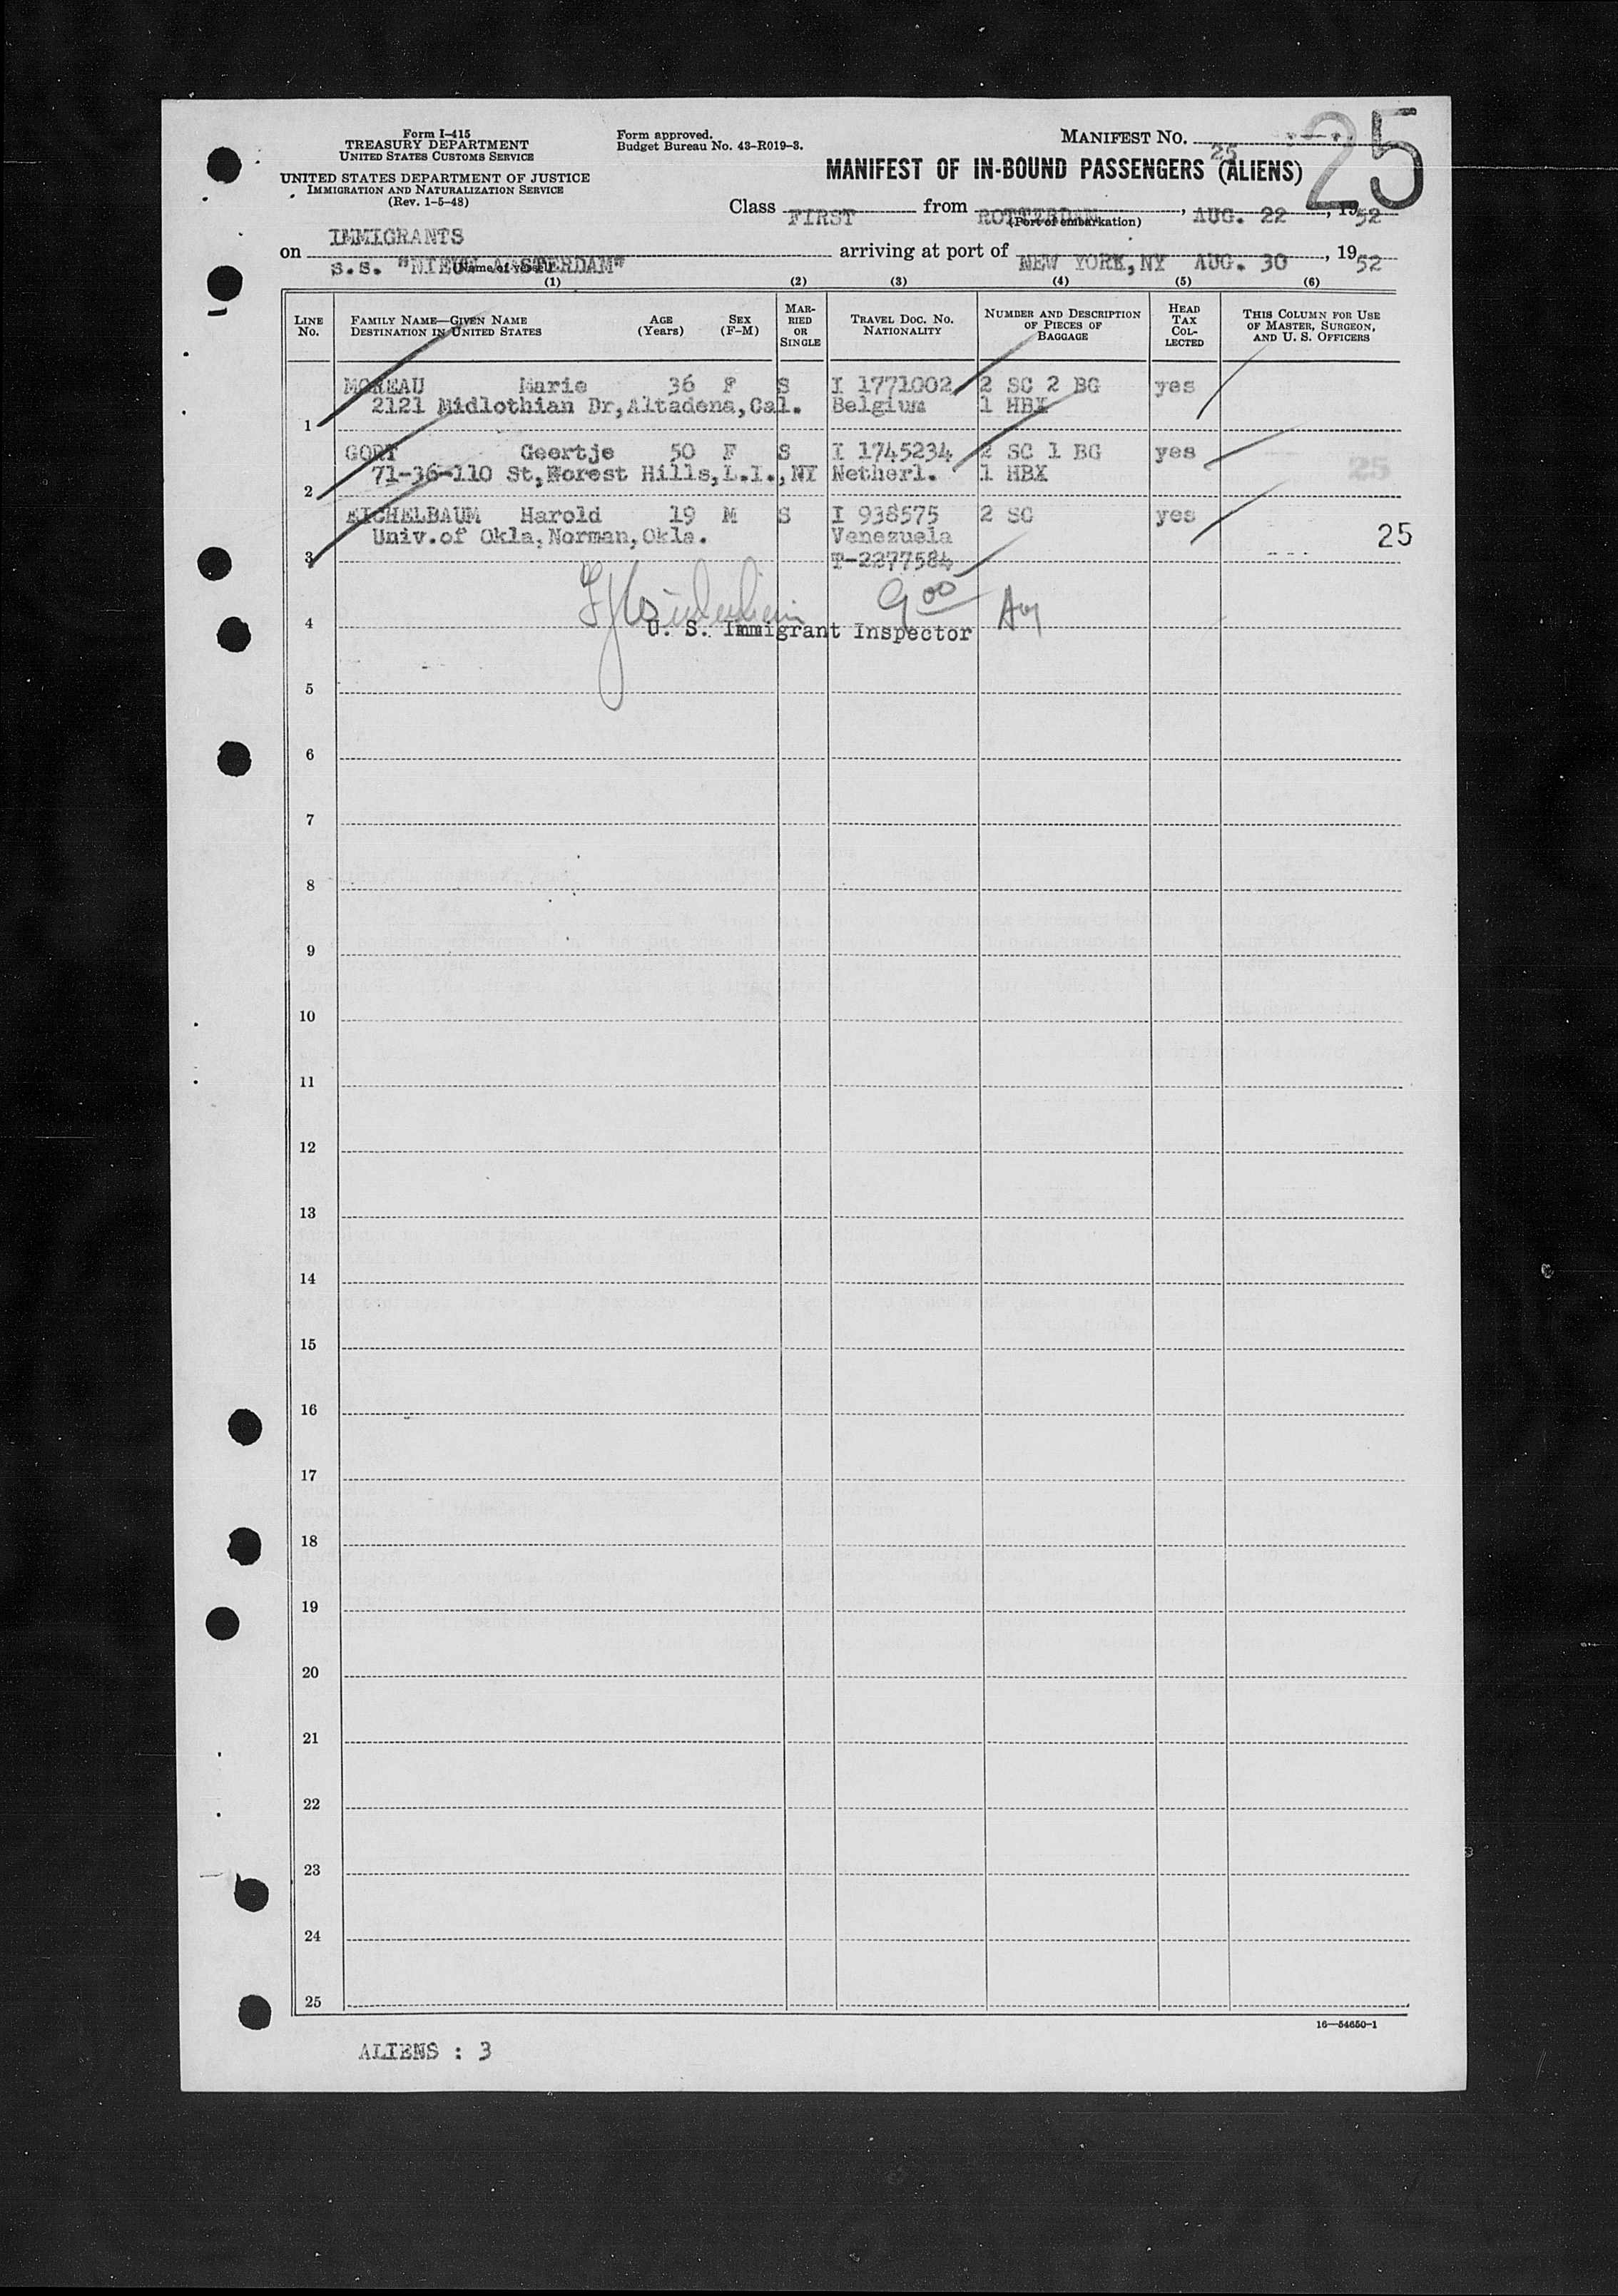 Form I-415
TREASURY DEPARTMENT
UNITED STATES CUSTOMS SERVICE
UNITED STATES DEPARTMENT OF JUSTICE
IMMIGRATION AND NATURALIZATION SERVICE
(Rev. 1-5-48)
Form approved.
Budget Bureau No. 43-R019-3.
MANIFEST NO. 25
25
MANIFEST OF IN-BOUND PASSENGERS (ALIENS)
Class FIRST from ROTTERDAM, AUG. 22, 1952
(Port of embarkation)
IMMIGRANTS
on s.s. "NIEUW AMSTERDAM" arriving at port of NEW YORK, NY AUG. 30, 1952
(Name of vessel)
(1) (2) (3) (4) (5) (6)
LINE No. FAMILY NAME—GIVEN NAME DESTINATION IN UNITED STATES AGE (Years) SEX (F-M) MARRIED OR SINGLE TRAVEL DOC. NO. NATIONALITY NUMBER AND DESCRIPTION OF PIECES OF BAGGAGE HEAD TAX COLLECTED THIS COLUMN FOR USE OF MASTER, SURGEON, AND U. S. OFFICERS
MOREAU Marie 36 F S I 1771002 2 SC 2 BG yes
1 2121 Midlothian Dr, Altadena, Cal. Belgium 1 HBX
GORT Geertje 50 F S I 1745234 2 SC 1 BG yes
2 71-36-110 St, Forest Hills, L.I., NY Netherl. 1 HBX 25
EICHELBAUM Harold 19 M S I 938575 2 SC yes
Univ. of Okla, Norman, Okla. Venezuela 25
3 T-2277584
9 00
4 U. S. Immigrant Inspector
5
6
7
8
9
10
11
12
13
14
15
16
17
18
19
20
21
22
23
24
25
16—54650-1
ALIENS : 3